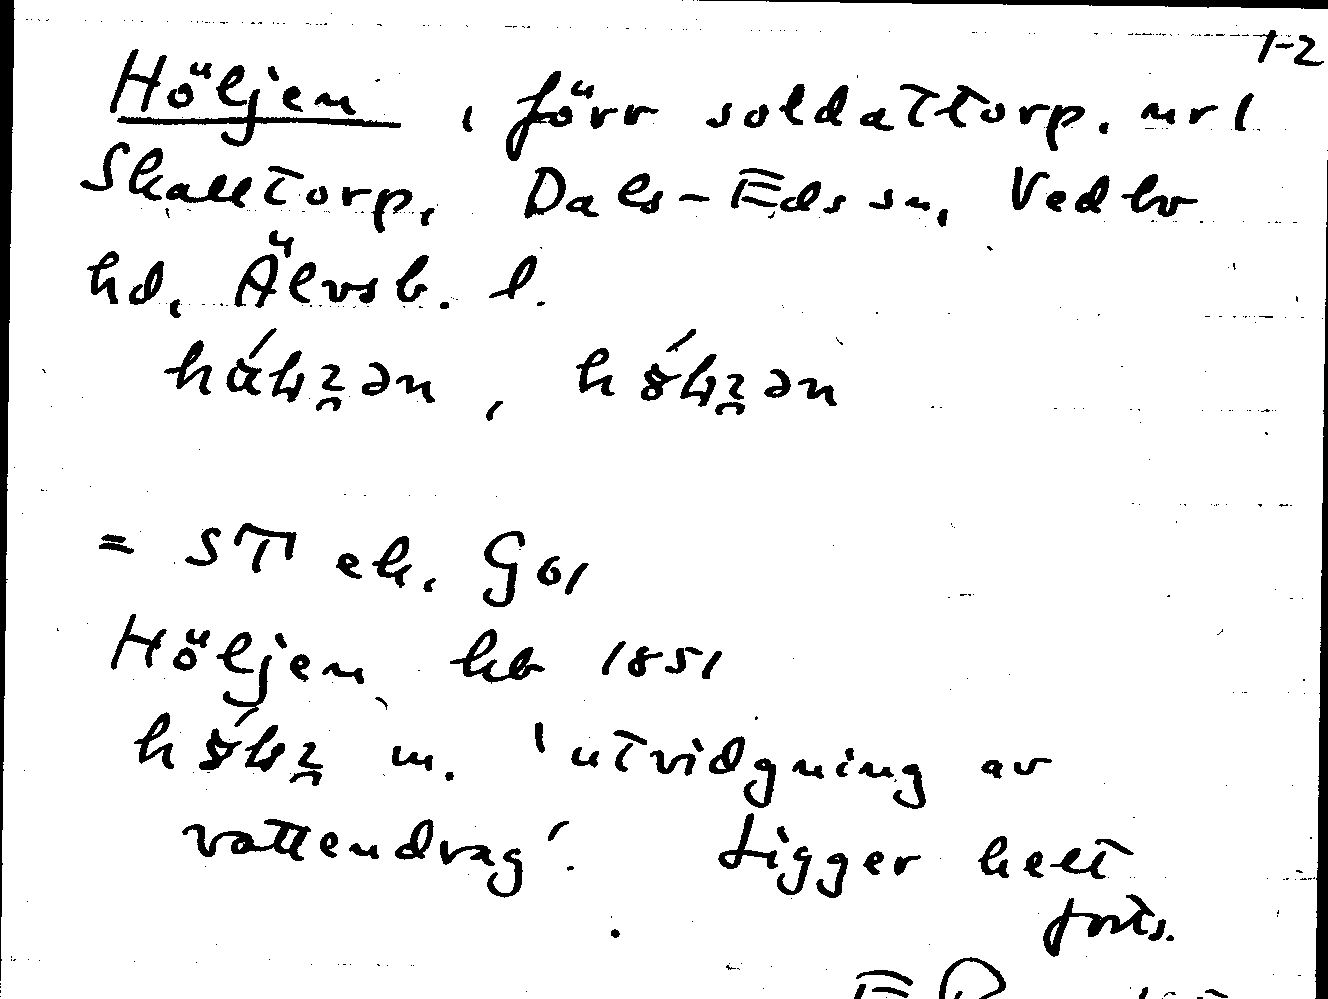 1-2
Höljen, förr soldattorp, nr 1
Skälltorp, Dals-Eds sn, Vedbo
hd, Älvsb. l.
= ST ek. G61
Höljen hb 1851
m. 'utvidgning av
vattendrag'. Ligger helt
forts.